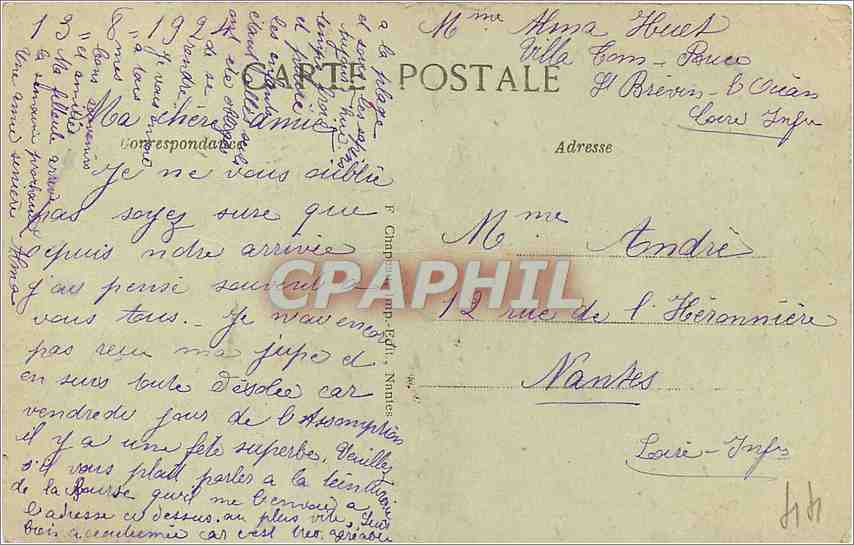 13 - 8 - 1924
CARTE POSTALE
Correspondance
Adresse
Mme Alma Huet
Villa Tom-Pouce
St Brévin-l'Océan
Loire Infre
Ma chère amie
Je ne vous oublie
pas soyez sure que
depuis notre arrivée
j'ai pensé souvent à
vous tous. Je n'ai encore
pas reçu ma jupe et
en suis toute désolée car
vendredi jour de l'Assomption
il y a une fête superbe. Veuillez
s'il vous plait parler à la teinturerie
de la Bourse qu'il me l'envoie à
l'adresse ci dessus au plus vite.
car c'est très agréable
de se
rendre
Je vous
à tous
mes
bons souvenirs
et amitiés
Ma filleule arrive
la semaine prochaine
Une amie sincère Alma
à la plage
et
temps
les enfants
Mme André
12 rue de l'Héronnière
Nantes
Loire-Infre
F. Chapeau, Imp.-Edit., Nantes
CPAPHIL